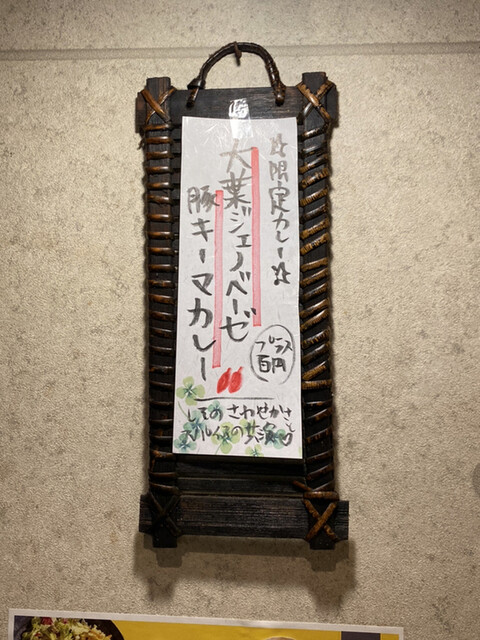 ☆限定カレー☆
大葉ジェノベーゼ
豚キーマカレー
プラス
百円
しそのさわやかさと
スパイスの共演